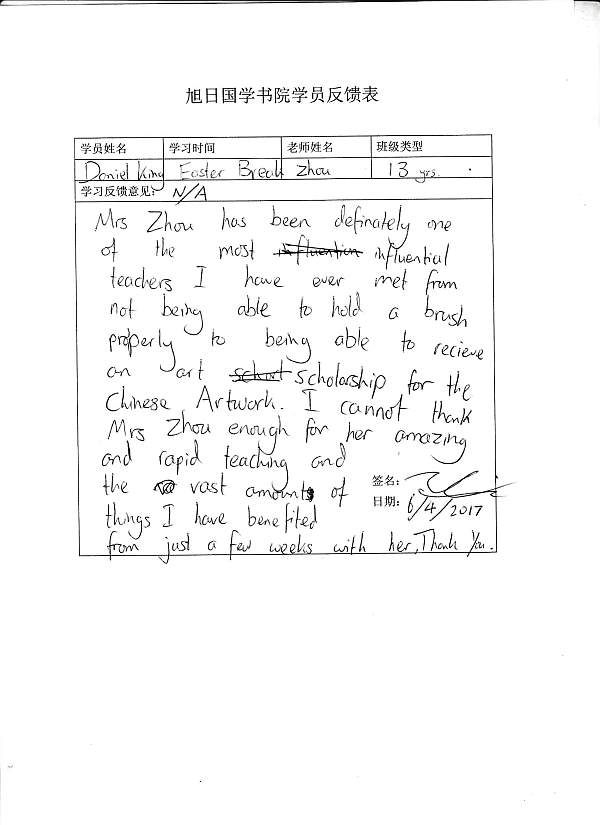 旭日国学书院学员反馈表
学员姓名 学习时间 老师姓名 班级类型
Daniel King Easter Break Zhou 13 yrs.
学习反馈意见: N/A
Mrs Zhou has been definately one
of the most influential
teachers I have ever met from
not being able to hold a brush
properly to being able to recieve
an art scholarship for the
Chinese Artwork. I cannot thank
Mrs Zhou enough for her amazing
and rapid teaching and
the vast amounts of
things I have benefited
from just a few weeks with her, Thank You.
签名:
日期: 6/4/2017